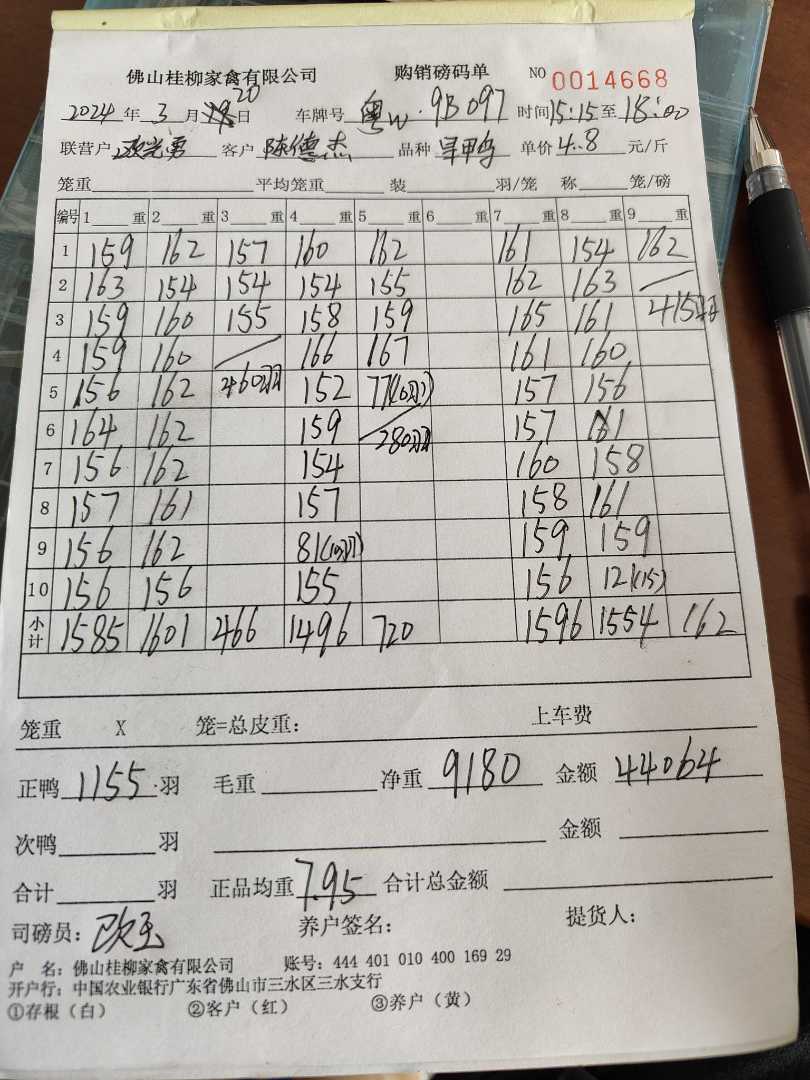 佛山桂柳家禽有限公司 购销磅码单 NO 0014668
2024年 3月 20日 车牌号 粤W·9B097 时间15:15至18:00
联营户 欧光勇 客户 陈德杰 品种 旱鸭 单价 4.8 元/斤
笼重______平均笼重______装______羽/笼 称______笼/磅
编号 1___重 2___重 3___重 4___重 5___重 6___重 7___重 8___重 9___重
1 159 162 157 160 162 161 154 162
2 163 154 154 154 155 162 163 /
3 159 160 155 158 159 165 161 415羽
4 159 160 / 166 167 161 160
5 156 162 460羽 152 77(10羽) 157 156
6 164 162 159 / 280羽 157 161
7 156 162 154 160 158
8 157 161 157 158 161
9 156 162 81(10羽) 159 159
10 156 156 155 156 121(15)
小计 1585 1601 466 1496 720 1596 1554 162
笼重 X 笼=总皮重: 上车费
正鸭 1155 羽 毛重______ 净重 9180 金额 44064
次鸭______羽 ______ 金额______
合计______羽 正品均重 7.95 合计总金额______
司磅员: 养户签名: 提货人:
户 名: 佛山桂柳家禽有限公司 账号: 444 401 010 400 169 29
开户行: 中国农业银行广东省佛山市三水区三水支行
①存根(白) ②客户(红) ③养户(黄)